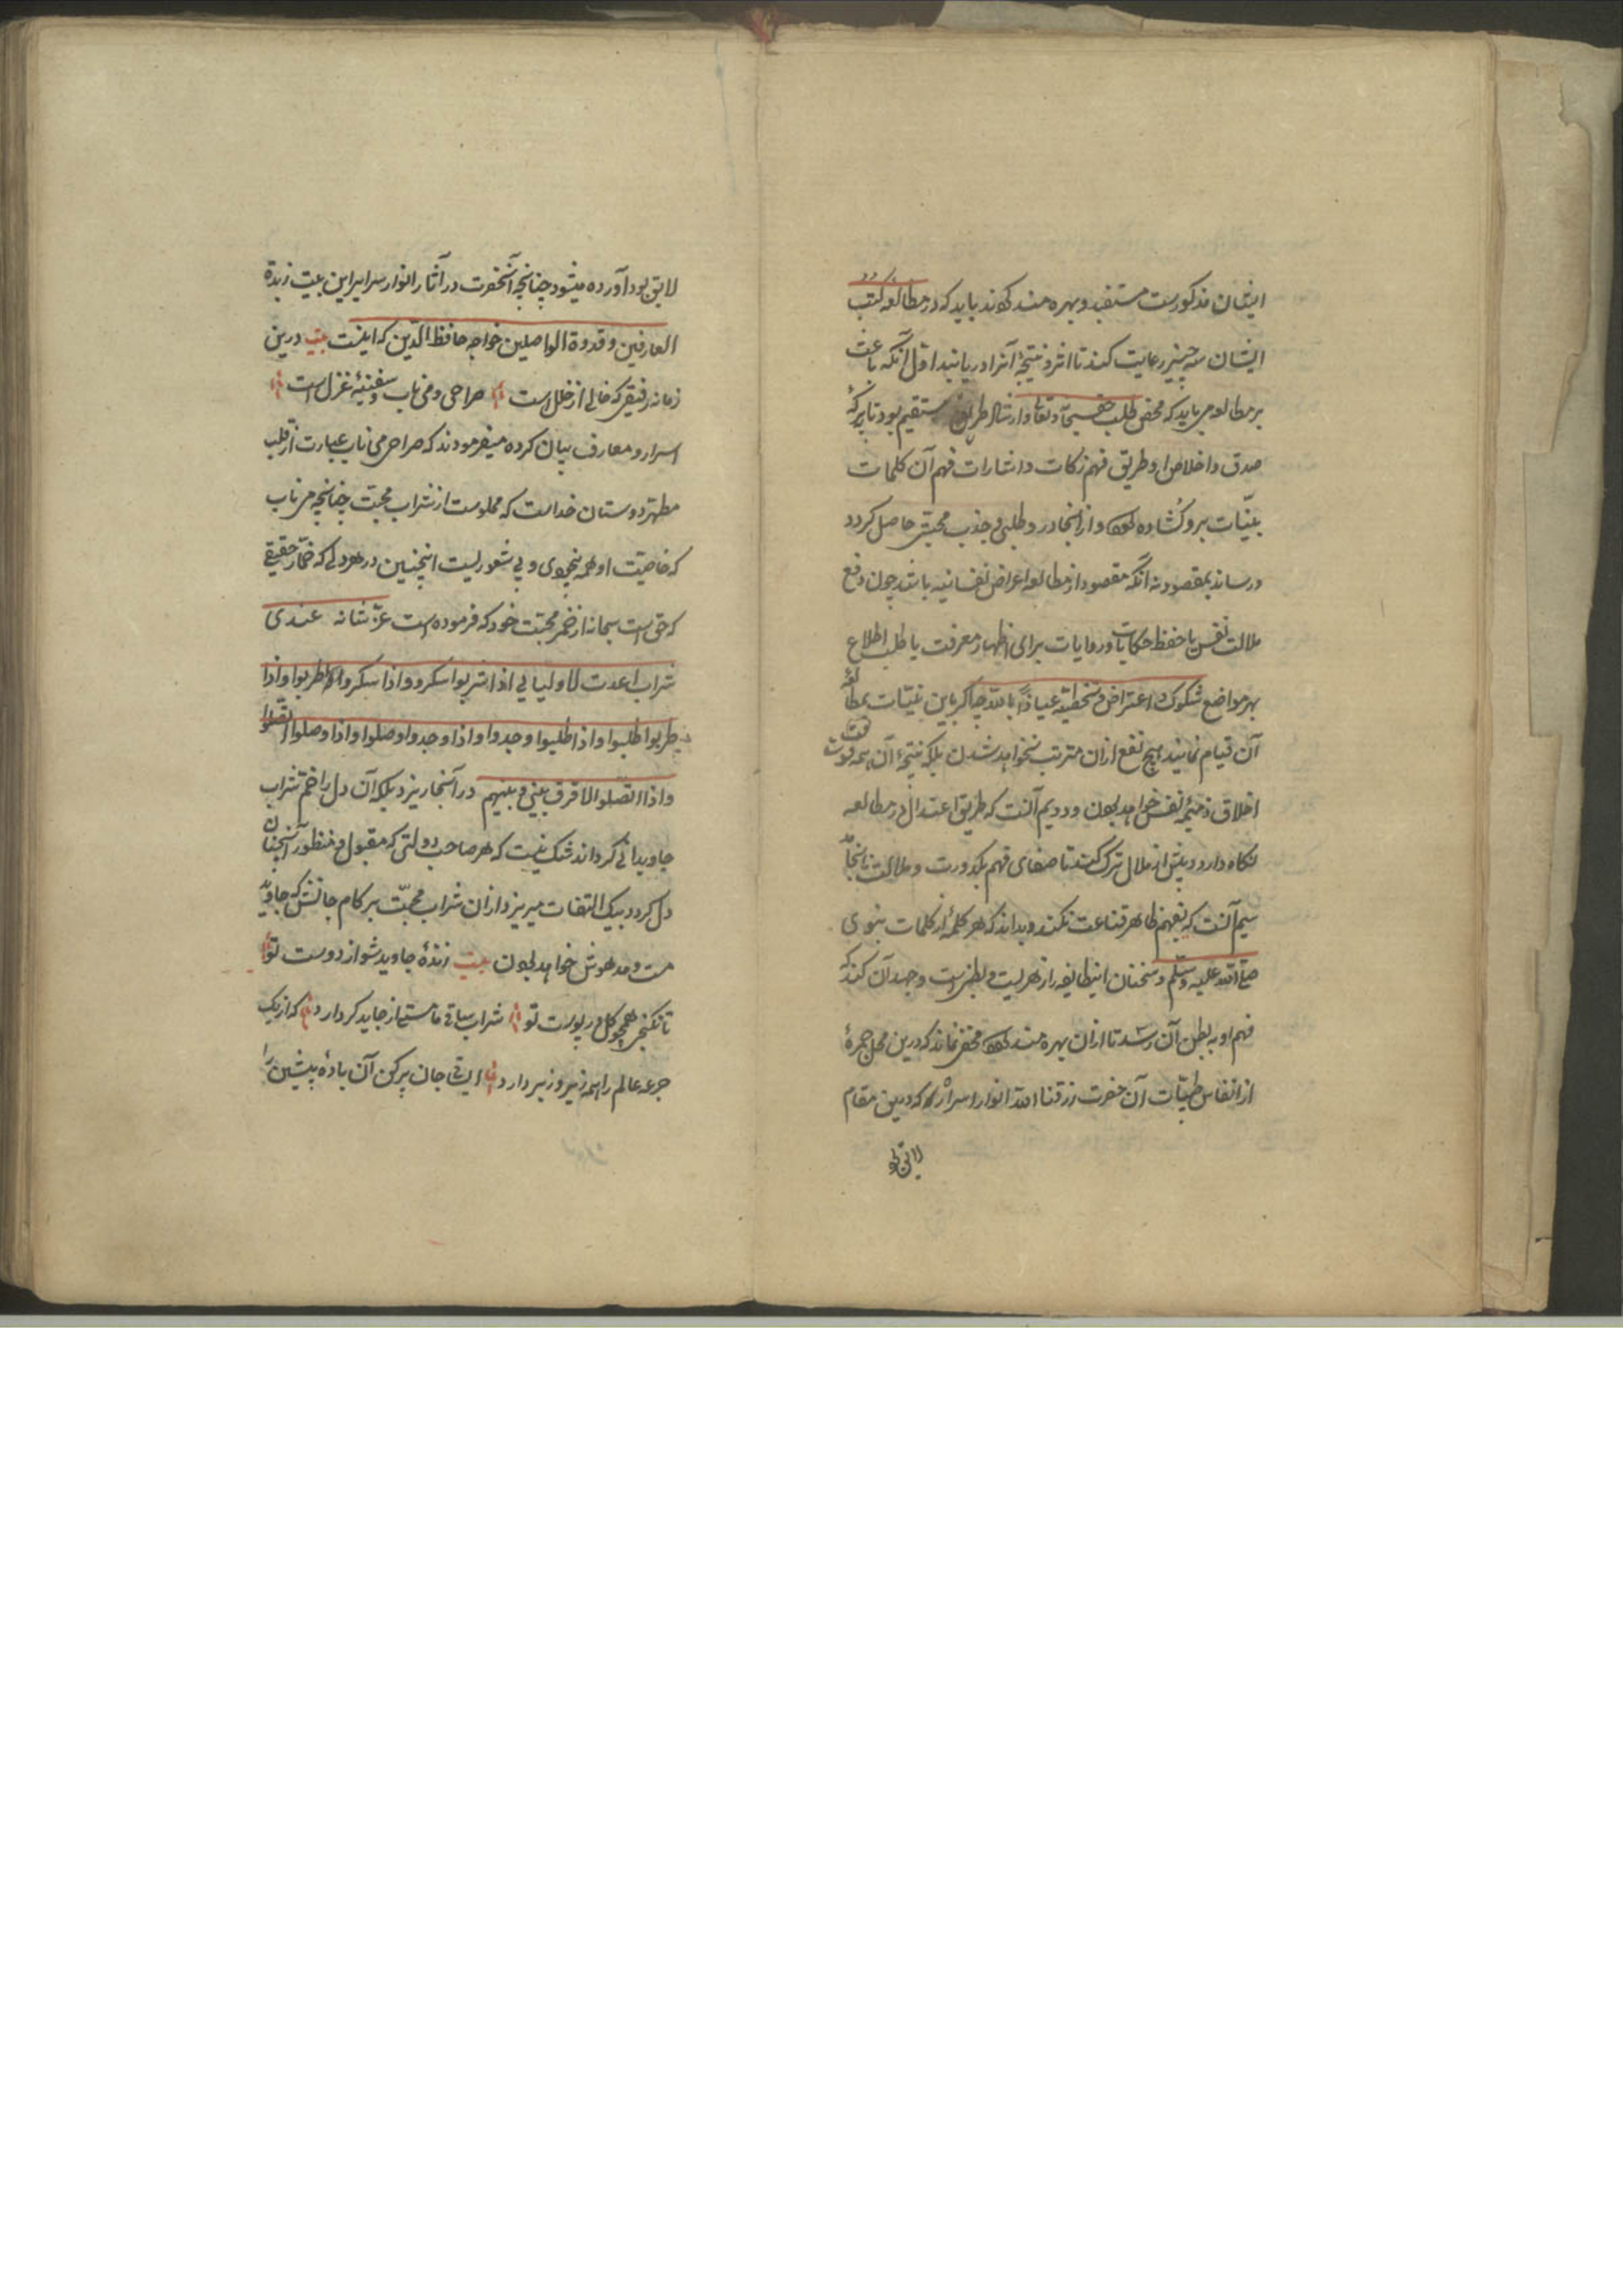 ایشان مذکورست مستفید و بهره مند کردند باید که در مطالعه کتب
ایشان سه چیز رعایت کنند تا اثر و نتیجهٔ آنرا دریابند اول آنکه باعث
بر مطالعه می باید که محض طلب حق سبحانه و تعالی و ارشاد طریق مستقیم بود تا ببرکهٔ
صدق و اخلاص او طریق فهم نکات و اشارات فهم آن کلمات
بینات برو کشاده کردد و از آنجا درد طلبی و جذب محبتی حاصل کردد
و رساند بمقصود نه آنکه مقصود از مطالعه اعراض نفسانیه باشد چون دفع
ملالت نفس یا حفظ حکایات و روایات برای اظهار معرفت یا طلب اطلاع
بر مواضع شکوک و اعتراض و تخطئه عیاذاً بالله چه اکر باین نیّات بمطالعهٔ
آن قیام نمایند هیچ نفع ازان مترتب نخواهد شدن بلکه نتیجهٔ آن همه قوت
اخلاق ذمیمهٔ نفس خواهد بودن و دویم آنست که طریق اعتدال در مطالعه
نکاه دارد و پیش از ملال ترک کند تا صفای فهم بکدورت و ملالت نانجامد
سیم آنست که بفهم ظاهر قناعت نکند و بداند که هر کلمهٔ از کلمات نبوی
صلی الله علیه وسلم و سخنان اینطایفه را ظهریست و بطنی است و جهد آن کند که
فهم او به بطن آن رسد تا ازان بهره مند کردد مخفی نماند که درین محل جمرهٔ
از انفاس طیّبات آن حضرت رزقنا الله انوار اسراره که درین مقام
لایق بو
لایق بود آورده میشود چنانچه آنحضرت در آثار انوار سرایر این بیت زبدة
العارفین و قدوة الواصلین خواجه حافظ الدّین که اینست بیت درین
زمانه رفیقی که خالی از خلل است صراحی و می ناب و سفینهٔ غزل است
اسرار و معارف بیان کرده میفرمودند که صراحی می ناب عبارت از قلب
مطهر دوستان خداست که مملوست از شراب محبّت چنانچه می ناب
که خاصیّت او همه بیخودی و بی شعوریست اینچنین در هر دلی که خمّار حقیقی
که حق است سبحانه از خمر محبّت خود که فرموده است عزّ شانه عندی
شراب اعدت لاولیایی اذا شربوا سکروا و اذا سکروا طربوا و اذا
طربوا طلبوا و اذا طلبوا وجدوا و اذا وجدوا وصلوا و اذا وصلوا اتصلوا
و اذا اتصلوا لا فرق بینی و بینهم در آنجا ریزد بلکه آن دل را خم شراب
جاویدانی کرداند شک نیست که هر صاحب دولتی که مقبول و منظور آنچنان
دل کردد بیک التفات میریزد ازان شراب محبّت بر کام جانش که جاوید
مست و مدهوش خواهد بودن بیت زندهٔ جاوید شو از دوست تو
تا نکنجی همچو کل در پوست تو شراب ساقی ما مستی از جاید کر دارد که از یک
جرعه عالم را همه زیر و زبر دارد ای ساقی جان پر کن آن بادهٔ پیشین را